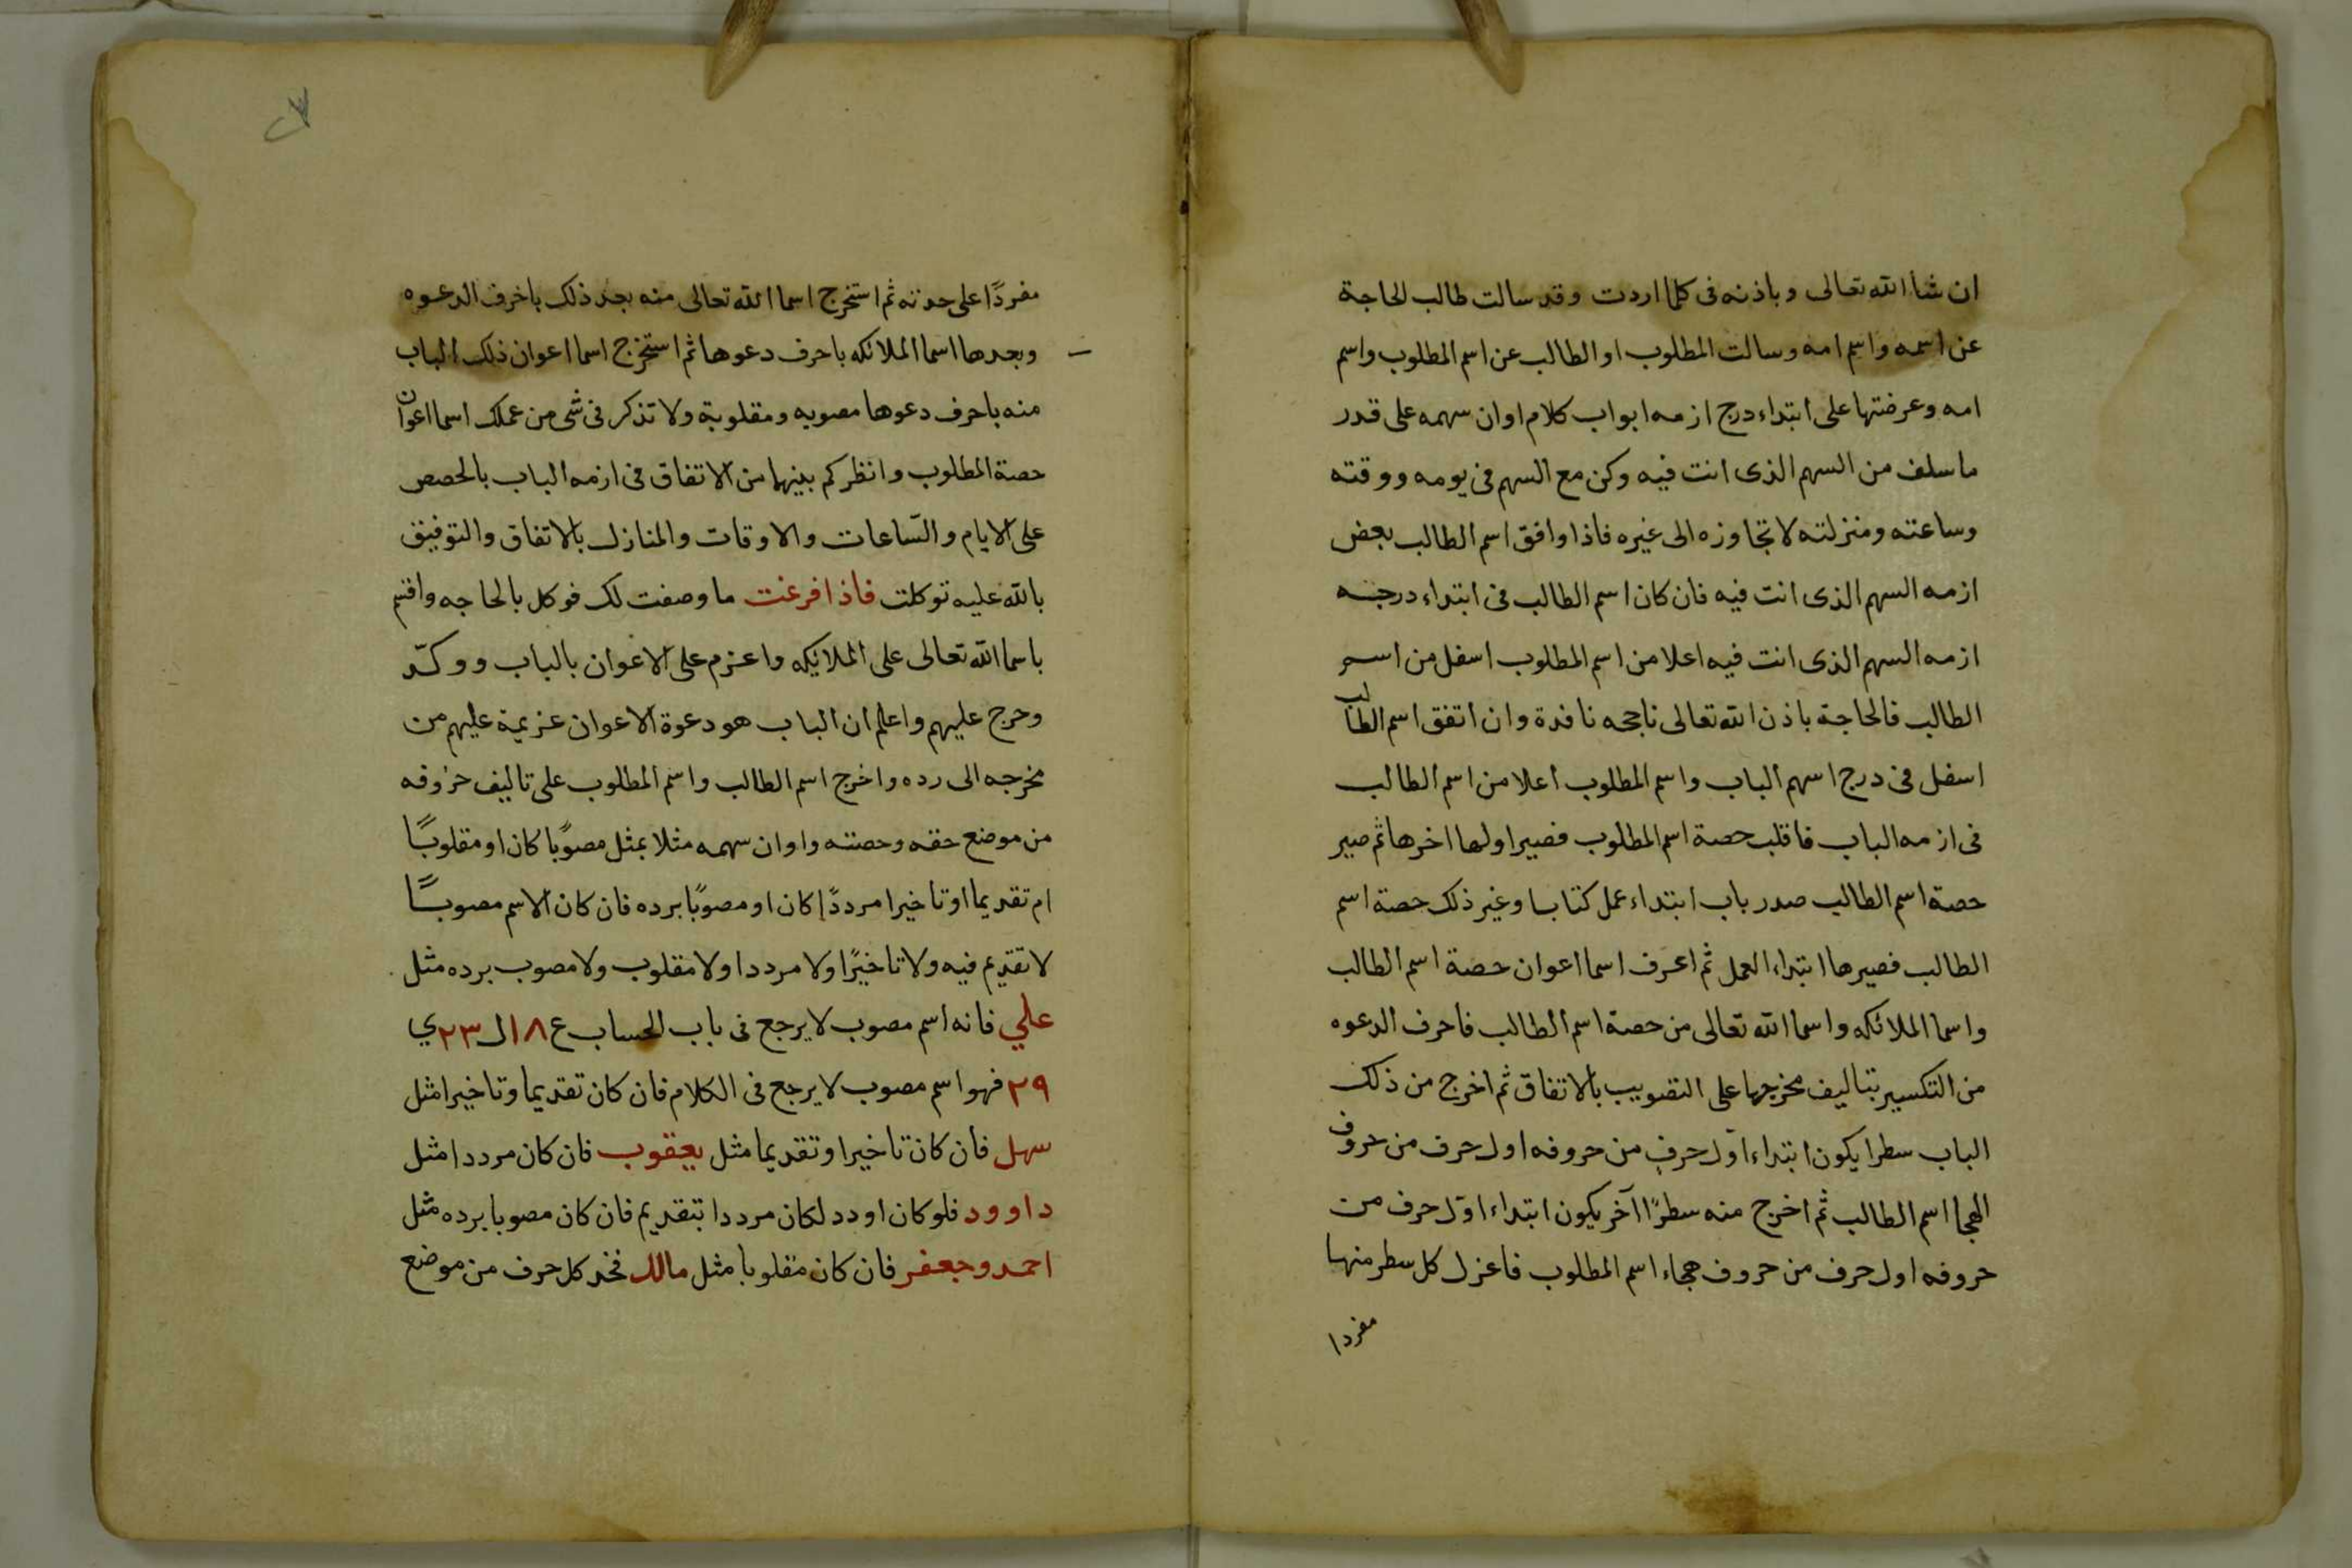 ان شا الله تعالى وباذنه فى كلما اردت وقد سالت طالب الحاجة
عن اسمه واسم امه وسالت المطلوب او الطالب عن اسم المطلوب واسم
امه وعرضتها على ابتداء درج ازمه ابواب كلام اوان سهمه على قدر
ما سلف من السهم الذى انت فيه وكن مع السهم فى يومه ووقته
وساعته ومنزلته لا تجاوزه الى غيره فاذا وافق اسم الطالب بعض
ازمه السهم الذى انت فيه فان كان اسم الطالب فى ابتداء درجه
ازمه السهم الذى انت فيه اعلا من اسم المطلوب اسفل من اسم
الطالب فالحاجة باذن الله تعالى ناجحه نافدة وان اتفق اسم الطالب
اسفل فى درج اسهم الباب واسم المطلوب اعلا من اسم الطالب
فى ازمه الباب فاقلب حصة اسم المطلوب فصير اولها اخرها ثم صير
حصة اسم الطالب صدر باب ابتداء عمل كتابا وغير ذلك حصة اسم
الطالب فصيرها ابتداء العمل ثم اعرف اسما اعوان حصة اسم الطالب
واسما الملائكه واسما الله تعالى من حصة اسم الطالب فاحرف الدعوه
من التكسير بتاليف مخرجها على التصويب بالاتفاق ثم اخرج من ذلك
الباب سطرا يكون ابتداء اول حرف من حروفه اول حرف من حروف
الهجا اسم الطالب ثم اخرج منه سطرًا آخر يكون ابتداء اول حرف من
حروفه اول حرف من حروف هجاء اسم المطلوب فاعزل كل سطر منها
مفردا
مفردًا على حدته ثم استخرج اسما الله تعالى منه بعد ذلك باخرف الدعوه
وبعدها اسما الملائكه باحرف دعوها ثم استخرج اسما اعوان ذلك الباب
منه باحرف دعوها مصوبه ومقلوبة ولا تذكر فى شى من عملك اسما اعوان
حصة المطلوب وانظر كم بينهما من الاتفاق فى ازمه الباب بالحصص
على الايام والسّاعات والاوقات والمنازل بالاتفاق والتوفيق
بالله عليه توكلت فاذا فرغت ما وصفت لك فوكل بالحاجه واقسم
باسما الله تعالى على الملايكه واعزم على الاعوان بالباب ووكّد
وحرج عليهم واعلم ان الباب هو دعوة الاعوان عزيمة عليهم من
مخرجه الى رده واخرج اسم الطالب واسم المطلوب على تاليف حروفه
من موضع حقه وحصته واوان سهمه مثلا بمثل مصوبًا كان او مقلوبًا
ام تقديما او تاخيرا مرددًا كان او مصوبًا برده فان كان الاسم مصوبًا
لا تقديم فيه ولا تاخيرًا ولا مرددا ولا مقلوب ولا مصوب برده مثل
علي فانه اسم مصوب لا يرجع فى باب الحساب ع ١٨ ل ٢٣ ي
٢٩ فهو اسم مصوب لا يرجع فى الكلام فان كان تقديما وتاخيرا مثل
سهل فان كان تاخيرا وتقديما مثل يعقوب فان كان مرددا مثل
داوود فلو كان اودد لكان مرددا بتقديم فان كان مصوبا برده مثل
احمد وجعفر فان كان مقلوبا مثل مالك فخد كل حرف من موضع